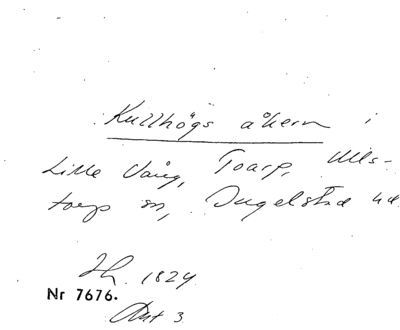 Kullhögs åkern i
Lille Vång, Toarp, Ulls-
torps sn, Ingelstad hd.
Th. 1824
Nr 7676.
Akt 3